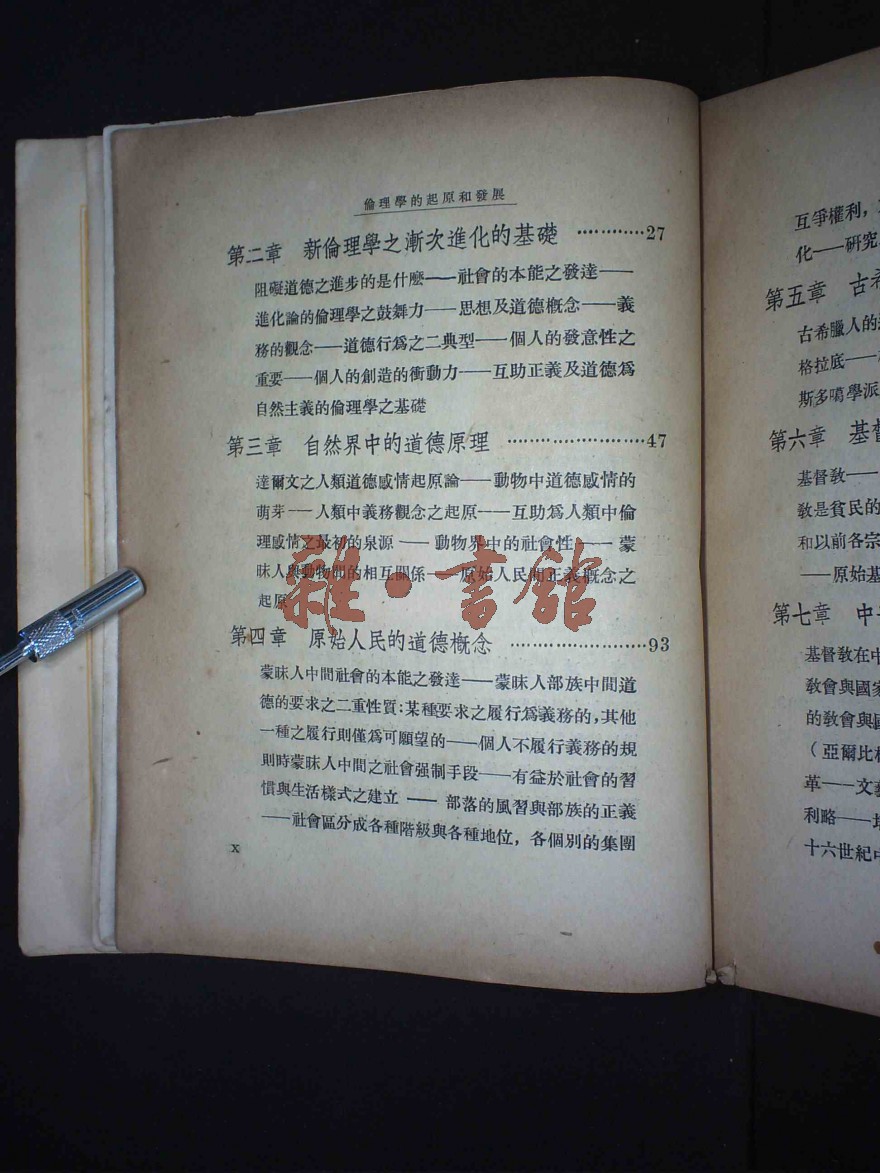 倫理學的起原和發展
第二章 新倫理學之漸次進化的基礎 …………27
阻礙道德之進步的是什麼——社會的本能之發達——
進化論的倫理學之鼓舞力——思想及道德槪念——義
務的觀念——道德行爲之二典型——個人的發意性之
重要——個人的創造的衝動力——互助正義及道德爲
自然主義的倫理學之基礎
第三章 自然界中的道德原理 ………………………47
達爾文之人類道德感情起原論——動物中道德感情的
萌芽——人類中義務觀念之起原——互助爲人類中倫
理感情之最初的泉源——動物界中的社會性——蒙
昧人與動物間的相互關係——原始人民間正義槪念之
起原
第四章 原始人民的道德槪念 ………………………93
蒙昧人中間社會的本能之發達——蒙昧人部族中間道
德的要求之二重性質：某種要求之履行爲義務的，其他
一種之履行則僅爲可願望的——個人不履行義務的規
則時蒙昧人中間之社會强制手段——有益於社會的習
慣與生活樣式之建立——部落的風習與部族的正義
——社會區分成各種階級與各種地位，各個別的集團
x
雜·書館
互爭權利，
化——研究
第五章 古希
古希臘人的
格拉底——
斯多噶學派
第六章 基督
基督敎——
敎是貧民的
和以前各宗
——原始基
第七章 中
基督敎在中
敎會與國家
的敎會與國
（亞爾比
革——文藝
利略——
十六世紀中